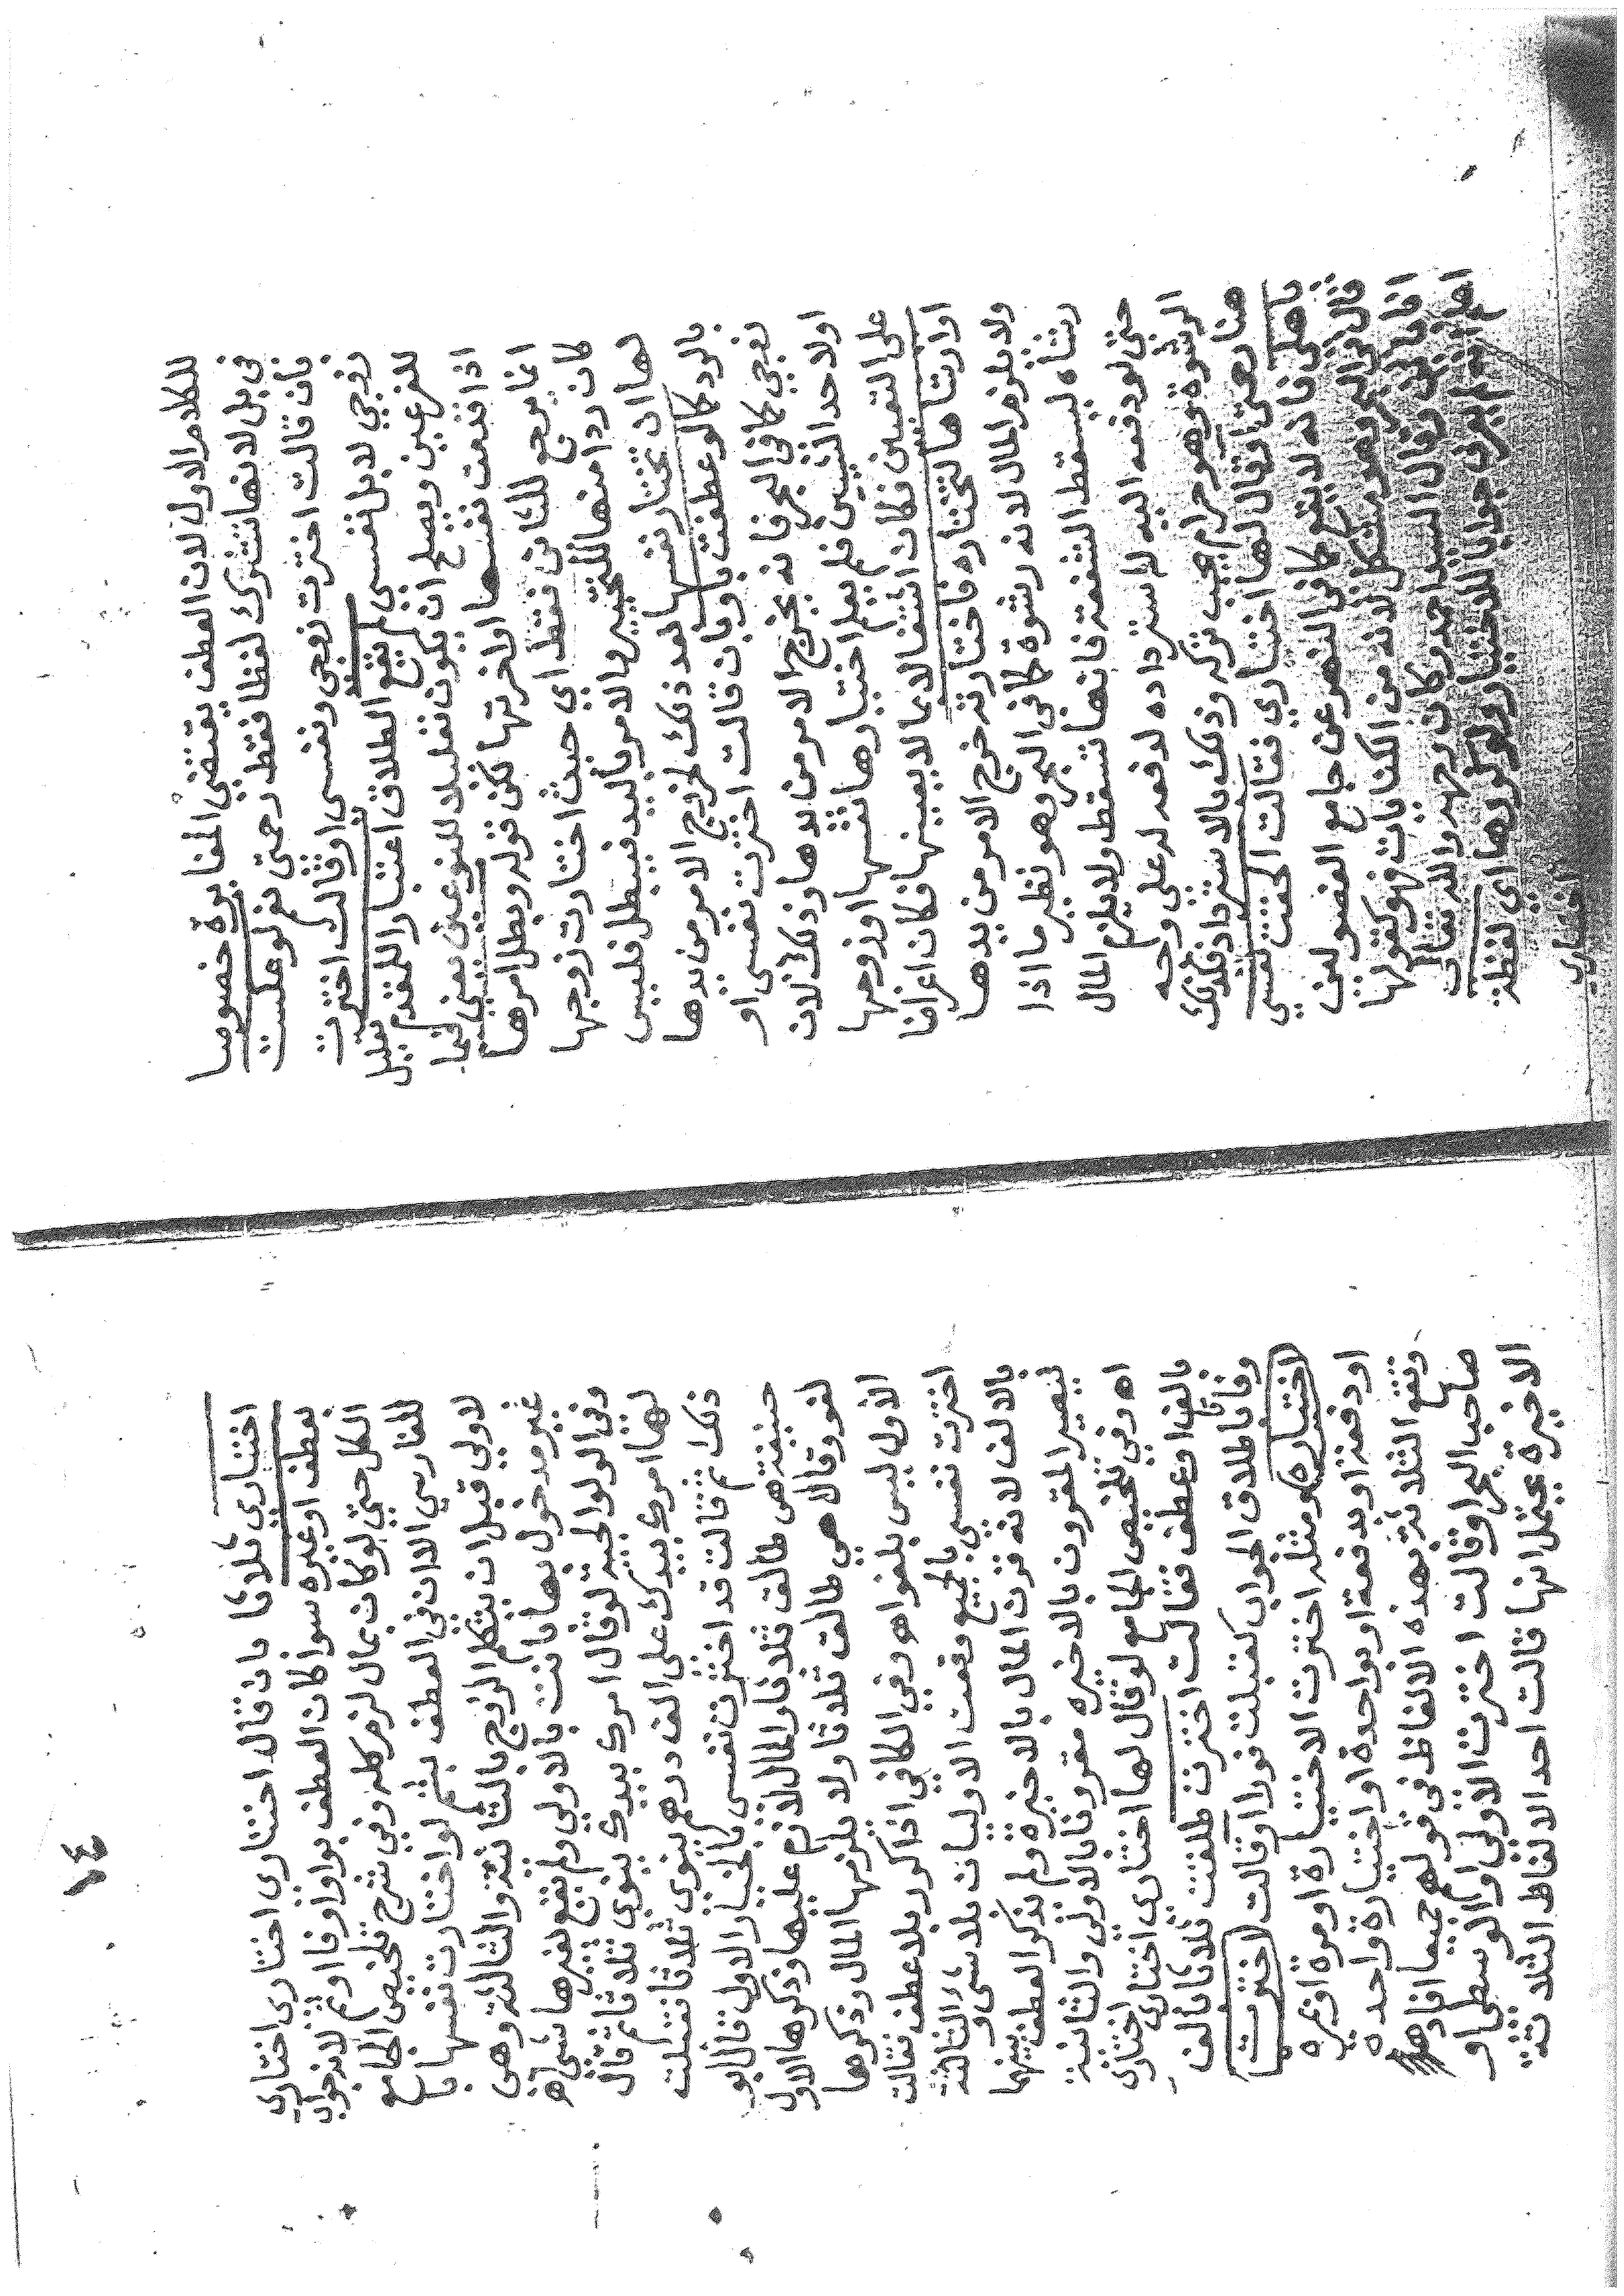 للكلام الاول لان العطف يقتضى المغايرة خصوصا
فى بل لانها تشرك لفظا فقط رحمتى نعم لو عكست
بأن قالت اخترت زوجى ونفسى او قالت اخترت
زوجي لا بل نفسى لم يقع الطلاق اعتبار للمقدم تعليل
للفرعين ويصلح ان يكون تعليلا للنوعين يعني فيما
اذا نفسها او اخرتها لكن قوله وبطل امرها
انما يرجع للثانى فقط اي حيث اختارت زوجها
كان ردا منها للتخيير والامر باليد فيبطل فليس
لها ان تختار نفسها بعد ذلك لخروج الامر من يدها
بالرد كما لو عطفت باو بان قالت اخترت نفسى او
زوجي كما فى البحر فانه يخرج الامر من يدها وذلك لان
او لاحد الشيئين فلم يعلم اختيارها نفسها او زوجها
على التعيين فكان اشتغالا بما لا يعينها فكان اعراضا
او ارشاها لتختاره فاختارته خرج الامر من يدها
ولا يلزم المال لانه رشوة كما فى البحر وهو نظير ما اذا
رشاه ليسقط الشفعة فانها تسقط ولا يلزم المال
حتى لو دفعه اليه له استرداده لدفعه له على وجه
الرشوة وهو حرام يجب تركه وذلك بالاسترداد فكذلك
هنا رحمتى او قال لها اختاري فقالت الحقت نفسي
باهلى فانه لا يقع كما فى النهر عن جامع الفصولين
قال فى البحر وهو مشكل لانه من الكنايات فهو كقولها
انا باين وقال السيد احمد وكان وجهه والله تعالى
اعلم انه لم يعرف جوابا للاختيار ولو كررها اي لفظة
اختاري
١٤
اختاري ثلاثا بان قال اختارى اختارى اختارى
بعطف او غيره سوا كان العطف بواو او فا او ثم لانه جواب
الكل حتى لو كان بمال لزم كله وفي شرح تلخيص الجامع
للفارسي الا ان في العطف بثم لو اختارت نفسها با
لاولي قبل ان يتكلم الزوج بالثانية والثالثة وهى
غير مدخول بها بانت بالاولي ولم تقع بغيرها شى اه
وفى الولوالجية لو قال امرك بيدك ينوى ثلاثا ثم قال
لها امرك بيدك على الف درهم ينوى ثلاثا فقبلت
ذلك ثم قالت قد اخترت نفسى بالخيار الاول قال ابو
حنيفة هى طالق ثلاثا والمال لازم عليها وذكر والاول
لغو وقال هي طالق ثلاثا ولا يلزمها المال وذكرها
الاول ليس بلغو اه وفي الكافي اذا كرر بلا عطف فقالت
اخترت نفسى بالجميع وقعت الاوليان بلا شىء والثالثة
بالالف لانه قرن المال بالاخيرة ولم يذكر العطف بينها
ليصير المقرون بالاخيره مقرونا بالاولى والثانية
اه وفي تلخيص الجامع لو قال لها اختاري اختارى اختارى
بالف او عطف فقالت اخترت طلقت ثلاثا بالف
وفاقا اطلاق الجواب كقبلت فورا وقالت اخترت
اختياره ومثله اخترت الاختيارة او مرة او بمره
او دفعة او بدفعة او بواحدة او اختيارة واحده
وتقع الثلاثة بهذه الالفاظ فى قولهم جميعا افاده
صاحب البحر او قالت اخترت الاولى او الوسطى او
الاخيرة يحتمل انها قالت احد الالفاظ الثلاثة